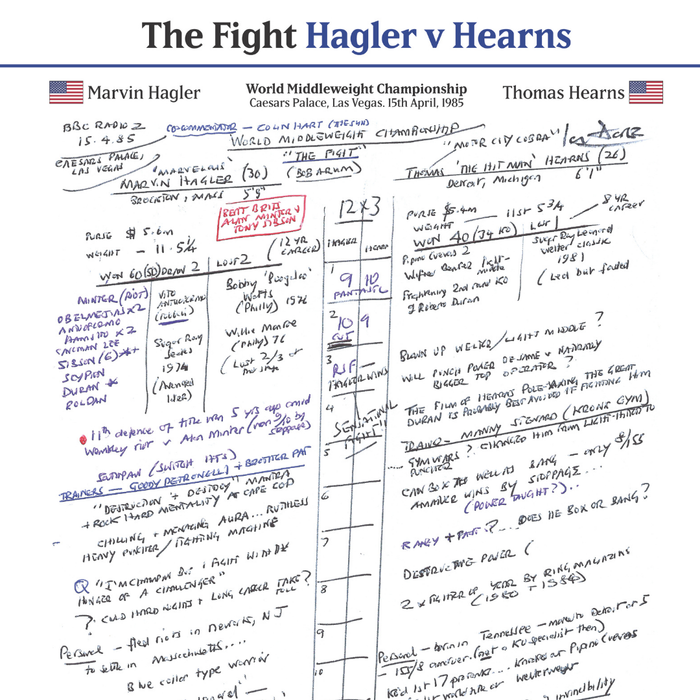 The Fight Hagler v Hearns
Marvin Hagler
World Middleweight Championship
Caesars Palace, Las Vegas. 15th April, 1985
Thomas Hearns
BBC RADIO 2
15.4.85
CAESARS PALACE,
LAS VEGAS
CO-COMMENTATOR - COLIN HART
WORLD MIDDLEWEIGHT CHAMPIONSHIP
"THE FIGHT"
(BOB ARUM)
"MARVELOUS"
MARVIN HAGLER (30)
BROCKTON, MASS 5'9"
"MOTOR CITY COBRA"
THOMAS 'THE HIT MAN' HEARNS (26)
Detroit, Michigan 6'1"
BEAT BRITS
ALAN MINTER &
TONY SIBSON
PURSE $5.6m
WEIGHT - 11.5 1/4
(12 YR
CAREER)
WON 60 (50) DRAW 2 LOST 2
MINTER (RIOT)
OBELMEJIAS X2
ANTUOFERMO
HAMSHO X2
CAVEMAN LEE
SIBSON (6)
SCYPION
DURAN
ROLDAN
VITO
ANTUOFERMO
Sugar Ray
Seales
1974
Bobby 'Boogaloo'
Watts
(Philly) 1976
Willie Monroe
(Philly) 76
(Lost 2/3 of
12 X 3
HAGLER
HEARNS
1
9 10
2
10 9
CUT
3
RSF
HAGLER WINS
4
SENSATIONAL
FIGHT!!
5
6
7
8
9
10
PURSE $5.4m
WEIGHT - 11st 5 3/4
8 YR
CAREER
WON 40 (34 KO) LOST 1
Pipino Cuevas 2
Wilfred Benitez light-
middle
Frightening 2nd round KO
of Roberto Duran
Sugar Ray Leonard
welter classic
1981
(Led but faded
BLOWN UP WELTER/LIGHT MIDDLE?
WILL PUNCH POWER DE-SAME v NATURALLY
BIGGER TOP OPERATOR?
THE FILM OF HEARNS POLE-AXING THE GREAT
DURAN IS PROBABLY BEST AVOIDED IF FIGHTING HIM
TRAINER - MANNY STEWARD (KRONK GYM)
GYM WARS? CHANGED HIM FROM LIGHT-HITTER TO
PUNCHER
CAN BOX AS WELL AS BANG - ONLY 8/155
AMATEUR WINS BY STOPPAGE...
(POWER TAUGHT?)..
RANGY + FAST? ... DOES HE BOX OR BANG?
DESTRUCTIVE POWER (
2 X FIGHTER OF YEAR BY RING MAGAZINE
(1980 + 1984)
Personal - born in Tennessee - moved to Detroit at 5
- 155/8 amateur. (not a KO specialist then)
KO'd 1st 17 pro fights... knocks out Pipino Cuevas
invincibility
11th defence of title won 5 yrs ago amid
Wembley riot v Alan Minter (won 9/10 by
stoppage)
SOUTHPAW (SWITCH HITS)
TRAINERS - GOODY PETRONELLI + BROTHER PAT
"DESTRUCTION + DESTROY" MANTRA
+ ROCK HARD MENTALITY AT CAPE COD
CHILLING + MENACING AURA... RUTHLESS
HEAVY PUNCHER / FIGHTING MACHINE
Q "I'M CHAMPION BUT I FIGHT WITH THE
HUNGER OF A CHALLENGER"
? COULD HARD NIGHTS + LONG CAREER TAKE
TOLL?
Personal - fled riots in Newark, NJ
to settle in Massachusetts....
Blue collar type warrior